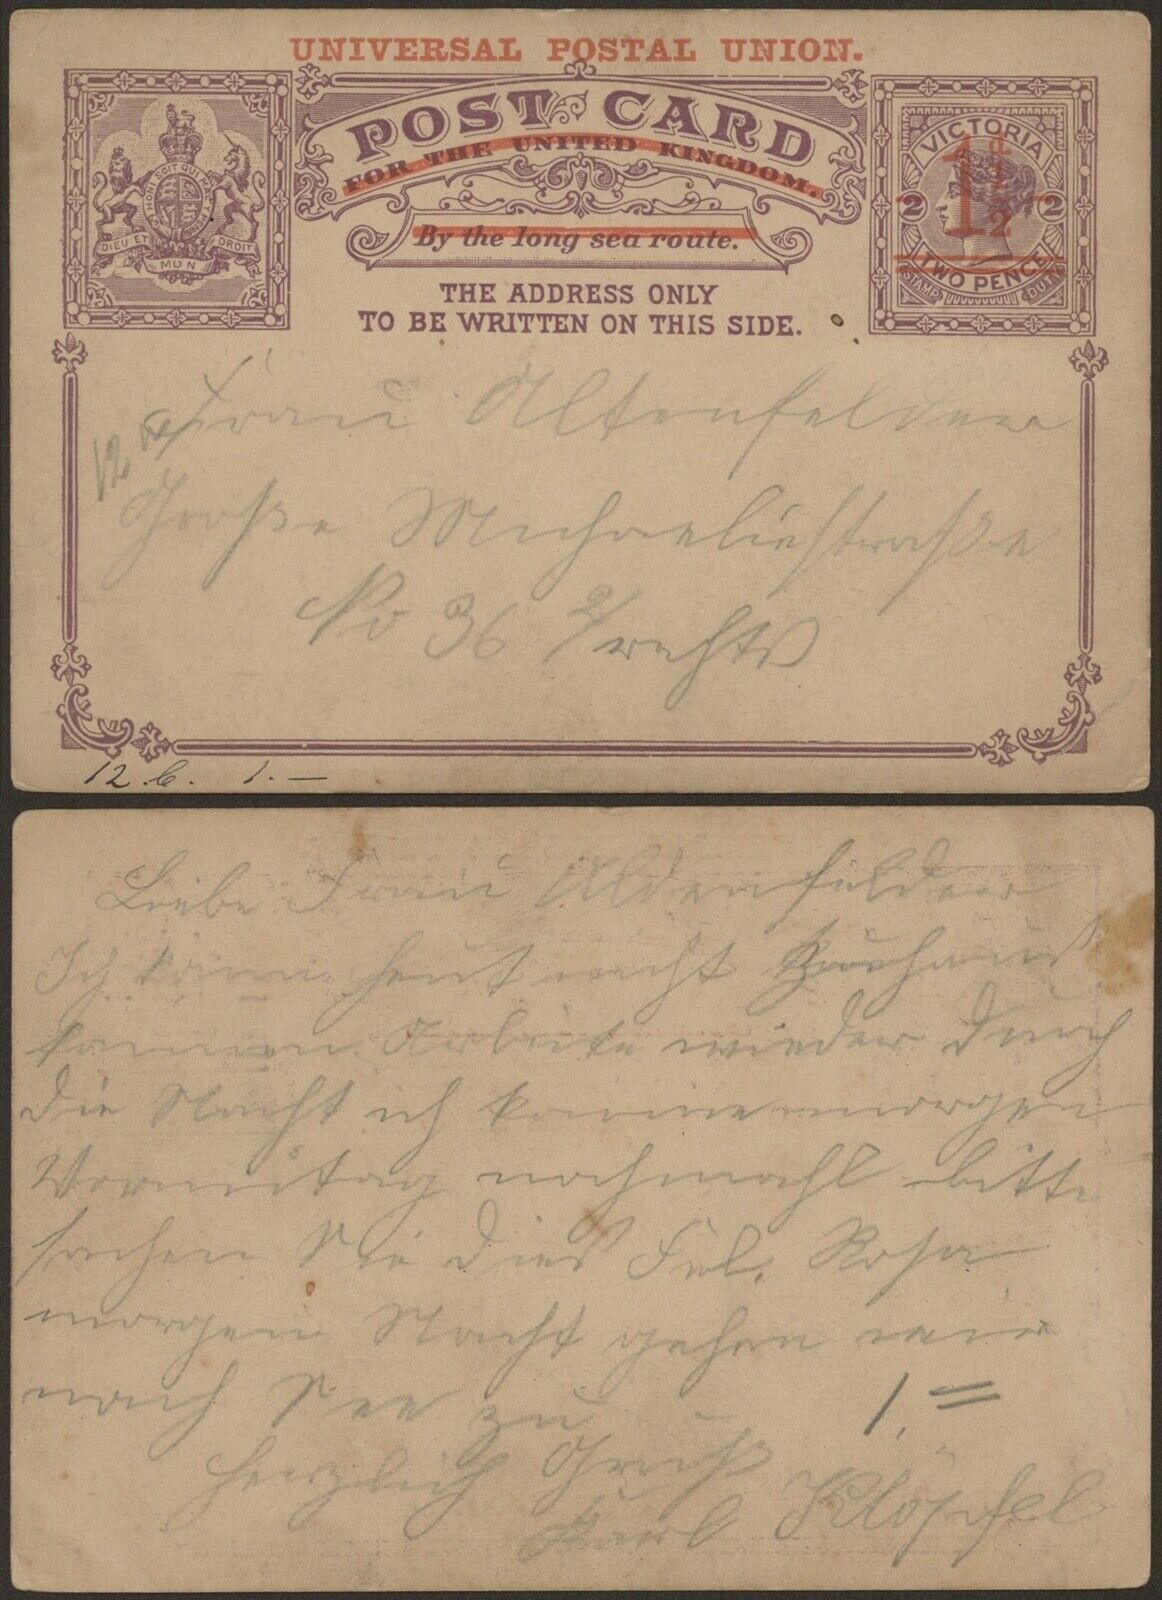 UNIVERSAL POSTAL UNION.
POST CARD
FOR THE UNITED KINGDOM.
By the long sea route.
THE ADDRESS ONLY
TO BE WRITTEN ON THIS SIDE.
HONI SOIT QUI MAL Y PENSE
DIEU ET MON DROIT
VICTORIA
1½ᵈ
2 2
TWO PENCE
STAMP DUTY
Frau Altenfelder
Große Michaelisstraße
No 36 2/ rechts
12.6. 1.—
Liebe Frau Aldenfelder
Ich kann heut nicht Zuhaus
kommen Arbeite wieder durch
die Nacht ich komme morgen
Vormittag nochmahl bitte
sachen Sie dies Frl. Rosa
morgen Nacht gehen wir
nach See zu
1.=
Herzlich Gruß
Karl Klöpfel